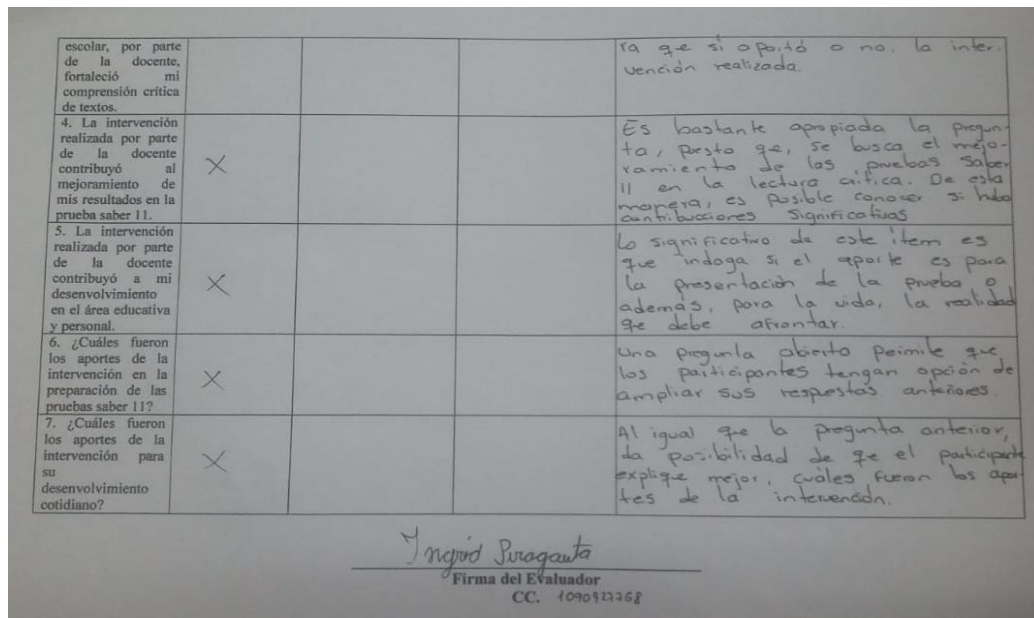 escolar, por parte
de la docente,
fortaleció mi
comprensión crítica
de textos.
ra que si aportó o no, la inter-
vención realizada.
4. La intervención
realizada por parte
de la docente
contribuyó al
mejoramiento de
mis resultados en la
prueba saber 11.
X
Es bastante apropiada la pregun-
ta, puesto qe, se busca el mejo-
ramiento de las pruebas Saber
11 en la lectura crítica. De esta
manera, es posible conocer si hubo
contribucciones significativas
5. La intervención
realizada por parte
de la docente
contribuyó a mi
desenvolvimiento
en el área educativa
y personal.
X
Lo significativo de este ítem es
que indaga si el aporte es para
la presentación de la prueba o
además, para la vida, la realidad
qe debe afrontar.
6. ¿Cuáles fueron
los aportes de la
intervención en la
preparación de las
pruebas saber 11?
X
Una pregunta abierta permite que
los participantes tengan opción de
ampliar sus respuestas anteriores.
7. ¿Cuáles fueron
los aportes de la
intervención para
su
desenvolvimiento
cotidiano?
X
Al igual que la pregunta anterior,
da posibilidad de qe el participante
explique mejor, cuáles fueron los apor-
tes de la intervención.
Ingrid Piragauta
Firma del Evaluador
CC. 1090927768